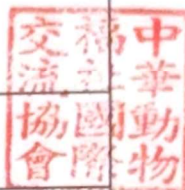 中華動物
福祉國際
交流協會